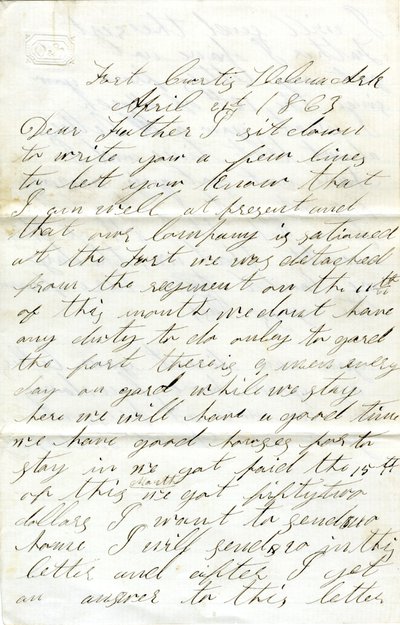 Fort Curtis Helena Ark
April 1863
Dear Father I sit down
to write you a few lines
to let you know that
I am well at present and
that our Company is sationed
at the Fort we was detached
from the regment on the
of this month we dont have
any duty to do onley to gard
the fort there is 9 men every
day on gard while we stay
here we will have a good time
we have good houses for to
stay in we got paid the 15th
of this month we got fiftytwo
dollars I want to send
home I will send in this
letter and after I get
an answer to this letter